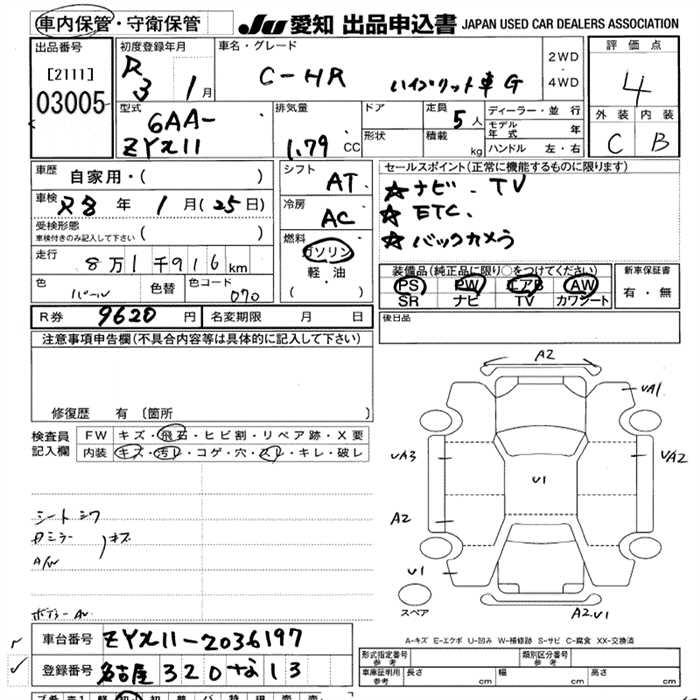 車内保管・守衛保管
JU 愛知 出品申込書 JAPAN USED CAR DEALERS ASSOCIATION
出品番号
[2111]
03005
初度登録年月
R3 1月
車名・グレード
C-HR ハイブリット車 G
2WD
・
4WD
評価点
4
外装 内装
C B
型式
6AA-
ZYX11
排気量
1.79 CC
ドア
形状
定員
5人
積載
kg
ディーラー・並行
モデル年式 年
ハンドル 左・右
車歴
自家用・( )
車検
R8年 1月(25日)
受検形態
車検付きのみ記入して下さい ( )
走行
8万1千916km
色
パール
色替
色コード
070
シフト
AT
冷房
AC
燃料
ガソリン
軽・油
( )
セールスポイント(正常に機能するものに限ります)
☆ナビ. TV
☆ETC.
☆バックカメラ
装備品(純正品に限り○をつけてください)
PS PW エアB AW
SR ナビ TV カワシート
新車保証書
有・無
R券 9620円
名変期限 月 日
後日品
注意事項申告欄(不具合内容等は具体的に記入して下さい)
修復歴 有〔箇所 〕
検査員
記入欄
FW キズ・飛石・ヒビ割・リペア跡・X要
内装 キズ・汚レ・コゲ・穴・スレ・キレ・破レ
シートシワ
カミラー
A/W
キズ
ボデーAu
A2
UA1
UA3
UA2
U1
A2
U1
A2.U1
スペア
A-キズ E-エクボ U-凹み W-補修跡 S-サビ C-腐食 XX-交換済
車台番号 ZYX11-2036197
登録番号 名古屋 320 な 13
形式指定番号
参考
類別区分番号
参考
車庫証明用
参考
長さ cm
幅 cm
高さ cm